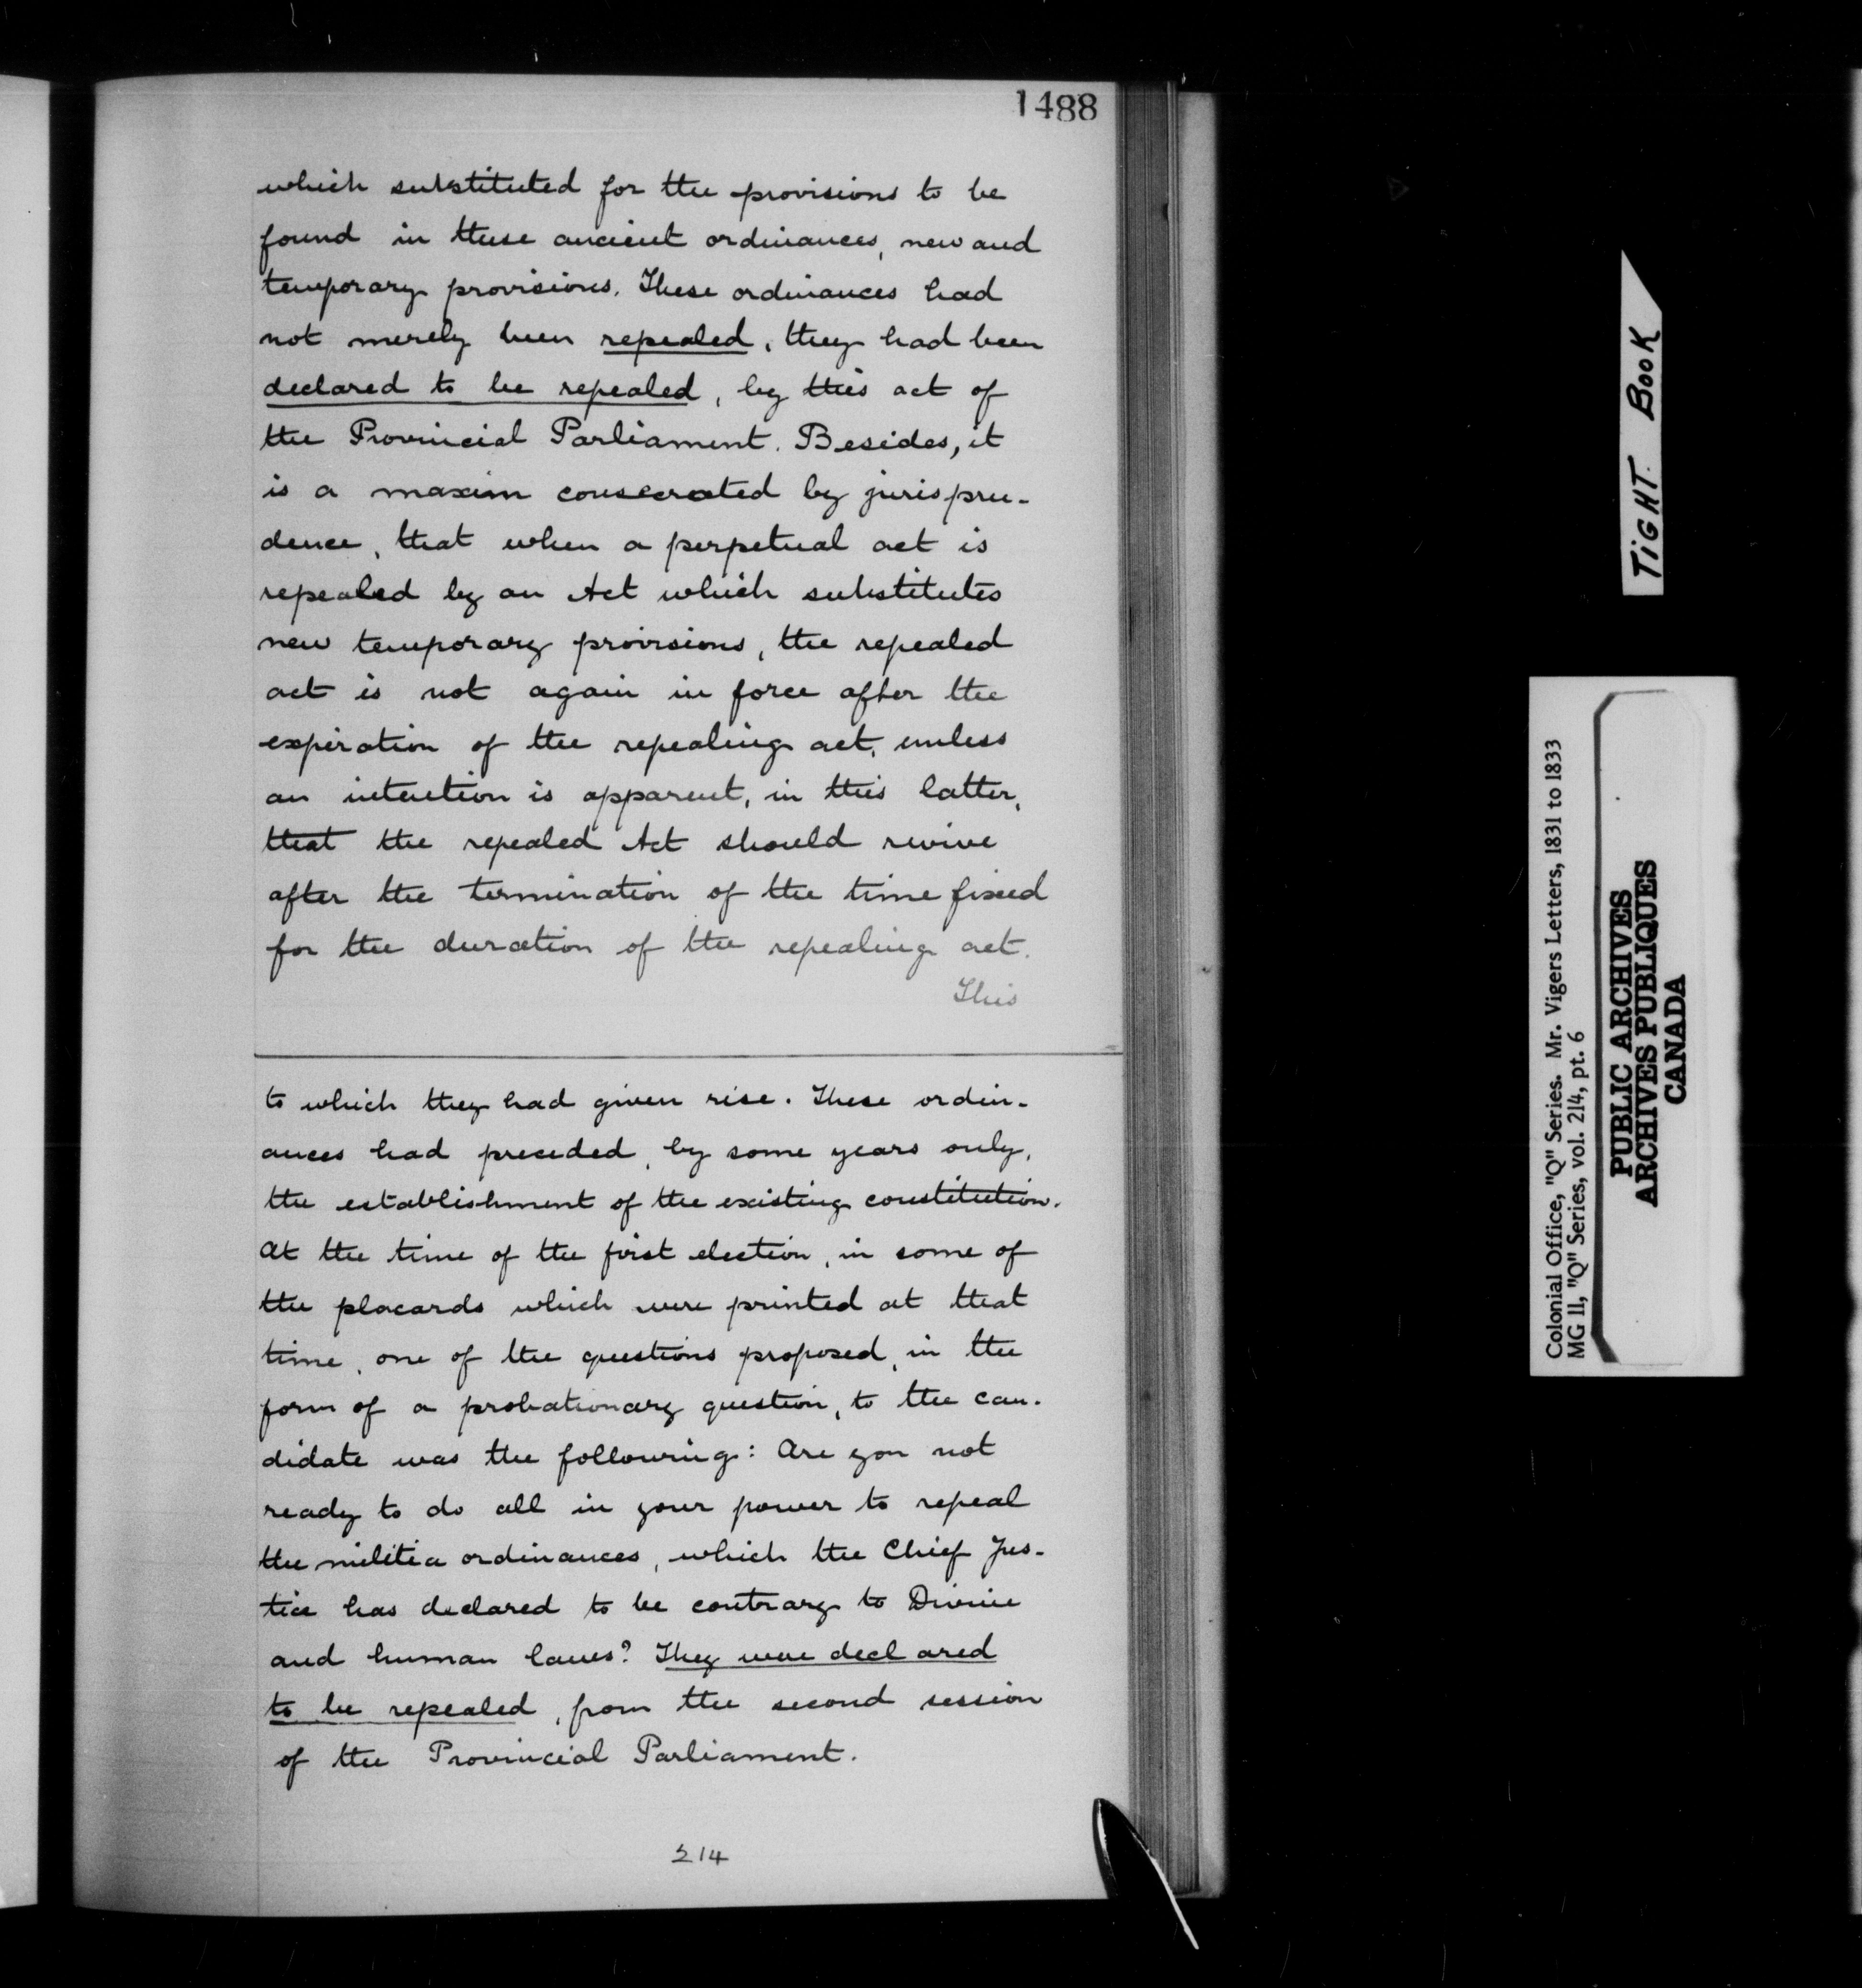 1488
which substituted for the provisions to be
found in these ancient ordinances, new and
temporary provisions. These ordinances had
not merely been repealed, they had been
declared to be repealed, by this act of
the Provincial Parliament. Besides, it
is a maxim consecrated by jurispru-
dence, that when a perpetual act is
repealed by an Act which substitutes
new temporary provisions, the repealed
act is not again in force after the
expiration of the repealing act, unless
an intention is apparent, in this latter,
that the repealed Act should revive
after the termination of the time fixed
for the duration of the repealing act.
This
to which they had given rise. These ordin-
ances had preceded, by some years only,
the establishment of the existing constitution.
At the time of the first election, in some of
the placards which were printed at that
time, one of the questions proposed, in the
form of a probationary question, to the can-
didate was the following: Are you not
ready to do all in your power to repeal
the militia ordinances, which the Chief Jus-
tice has declared to be contrary to Divine
and human laws? They were declared
to be repealed, from the second session
of the Provincial Parliament.
214
TIGHT BOOK
Colonial Office, "Q" Series. Mr. Vigers Letters, 1831 to 1833
MG 11, "Q" Series, vol. 214, pt. 6
PUBLIC ARCHIVES
ARCHIVES PUBLIQUES
CANADA